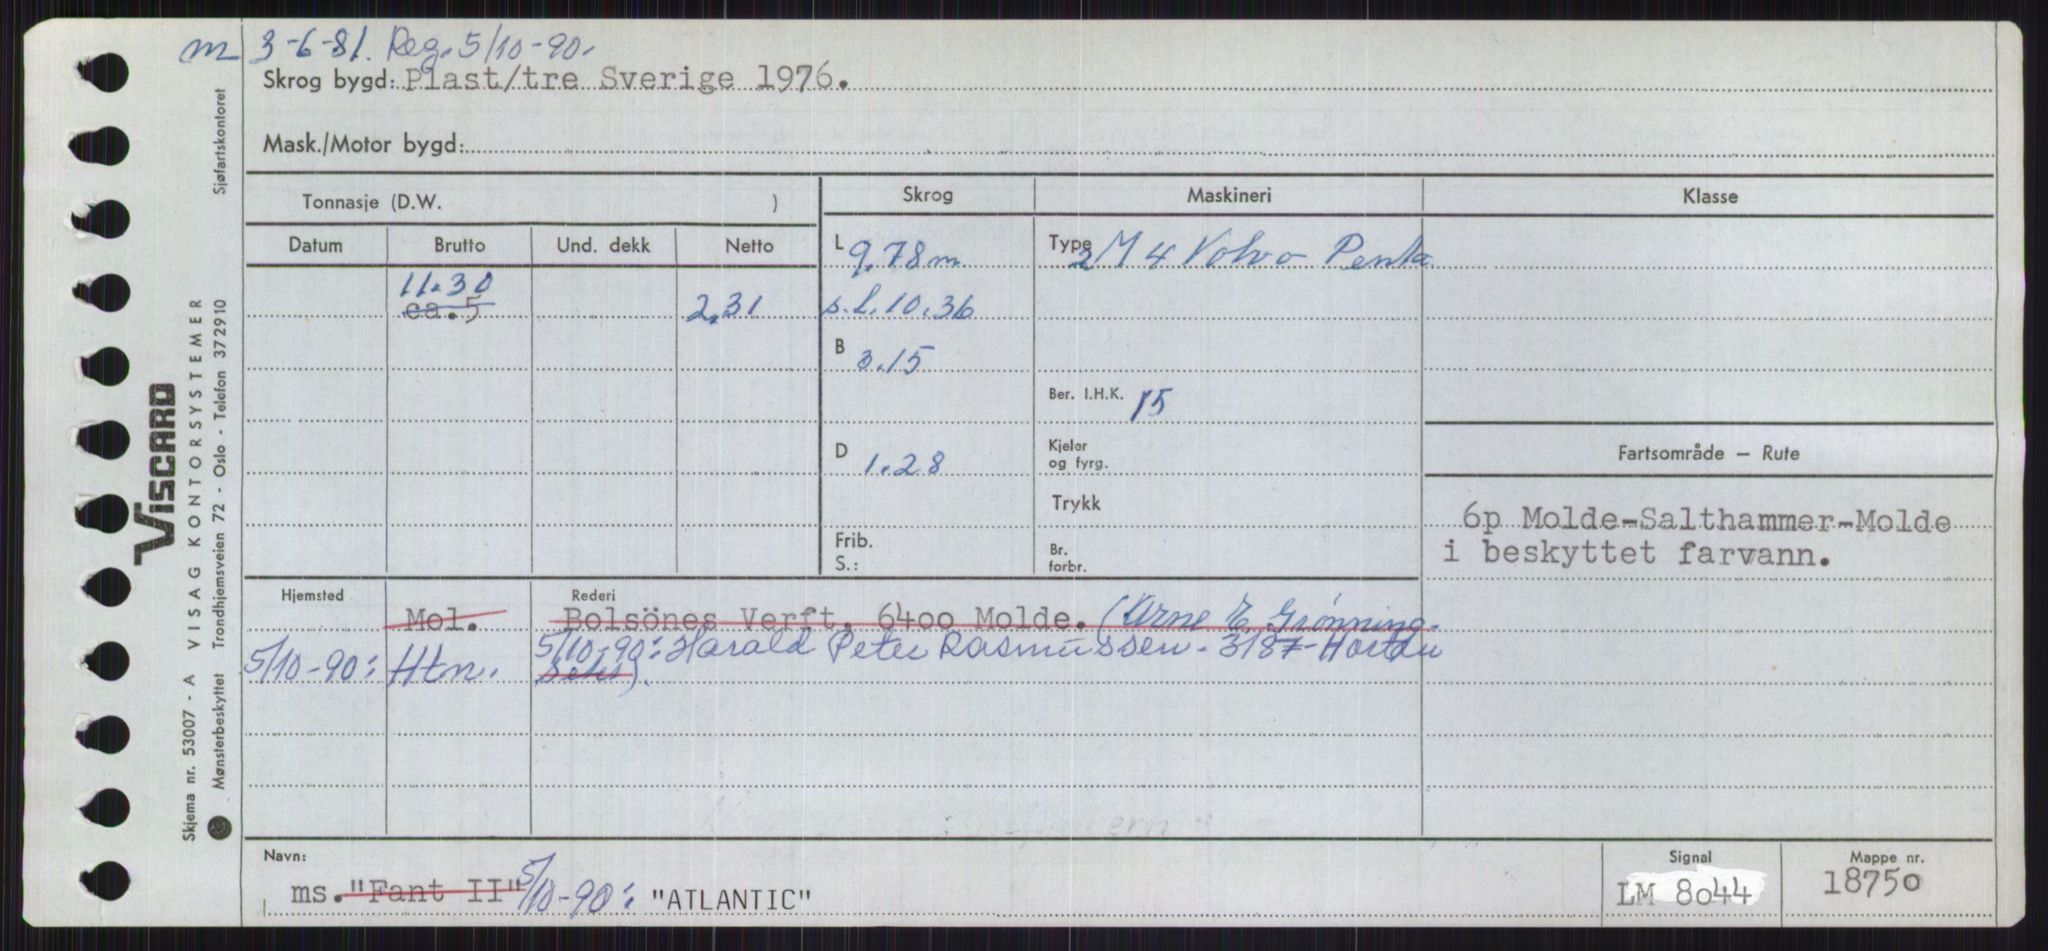 m 3-6-81. Reg. 5/10-90.
Skrog bygd: Plast/tre Sverige 1976.
Mask./Motor bygd:
Tonnasje (D.W. )
Skrog
Maskineri
Klasse
Datum
Brutto
Und. dekk
Netto
L 9,78 m
Type 2 M 4 Volvo Penta
11.30
ca. 5
2,31
s.l. 10.36
B 3.15
Ber. I.H.K. 15
D 1.28
Kjeler
og fyrg.
Fartsområde – Rute
Trykk
6p Molde-Salthammer-Molde
i beskyttet farvann.
Frib.
S.:
Br.
forbr.
Hjemsted
Rederi
Mol.
Bolsönes Verft, 6400 Molde. (Arne E. Grønning-
5/10-90: Htn.
5/10-90: Harald Peter Rasmussen - 3187-Horten
Navn:
ms. "Fant II" 5/10-90: "ATLANTIC"
Signal
LM 8044
Mappe nr.
18750
VISCARD
Skjema nr. 53007 - A VISAG KONTORSYSTEMER
Mønsterbeskyttet Trondhjemsveien 72 - Oslo - Telefon 372910 Sjøfartskontoret